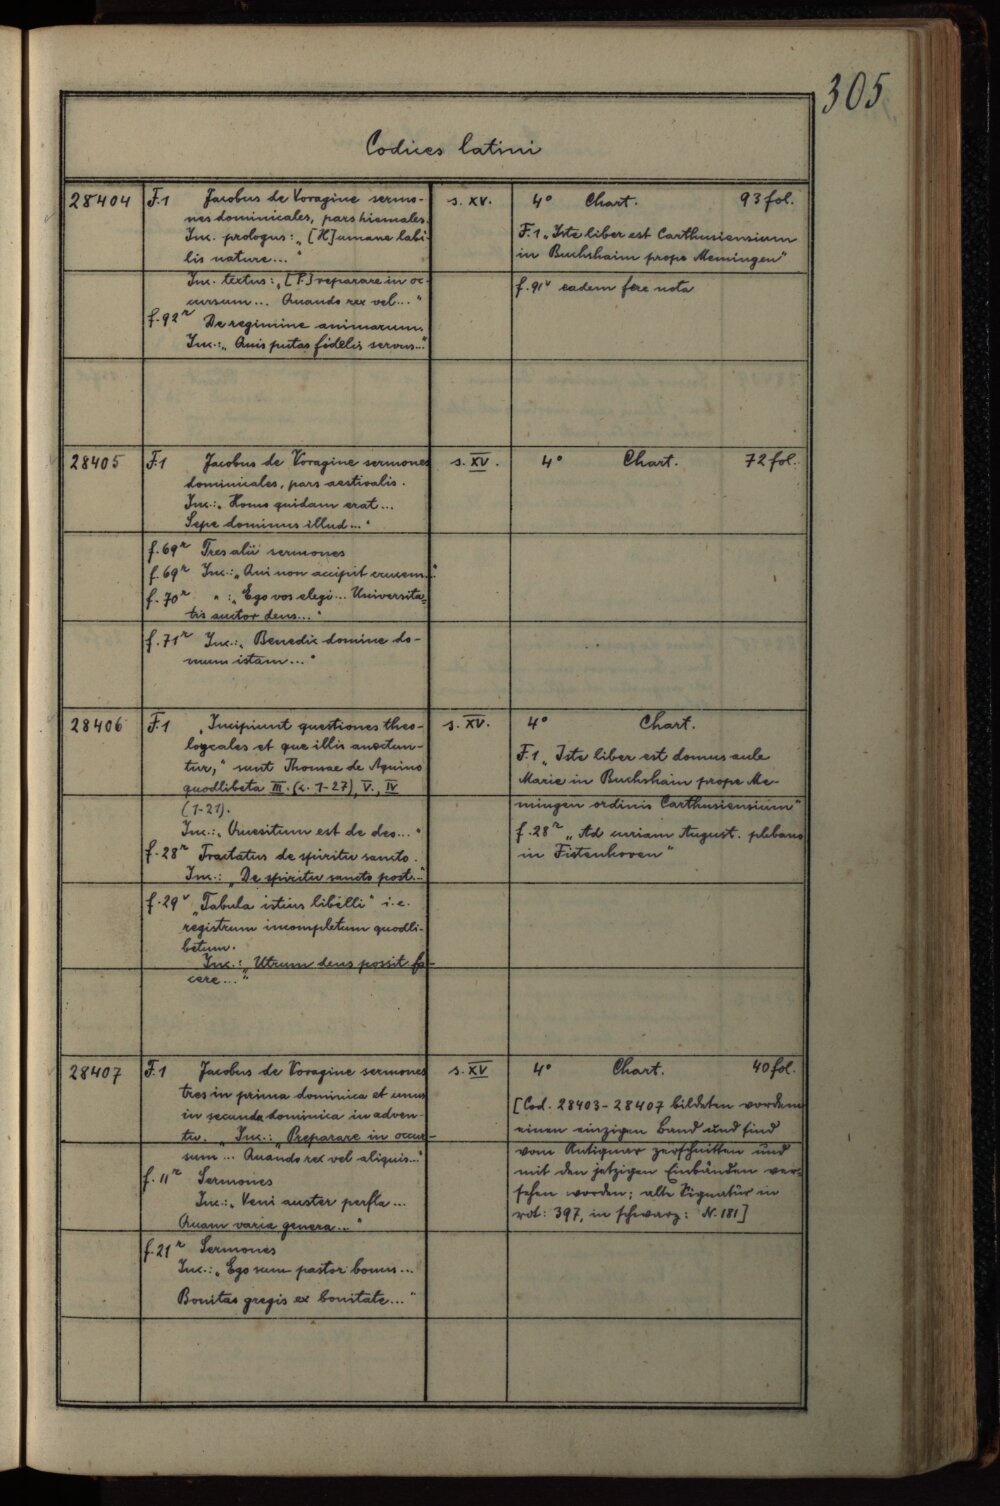 305
Codices latini
28404 F.1 Jacobus de Voragine sermo- s. XV. 4° Chart. 93 fol.
nes dominicales, pars hiemales.
Inc. prologus: „[H]umane labi-
lis nature..."
F.1 „Iste liber est Carthusiensium
in Buchshaim prope Memingen"
Inc. textus: „[P]reparare in oc-
cursum... Quando rex vel..."
f. 91v eadem fere nota
f. 92r De regimine animarum.
Inc.: „Quis putas fidelis servus..."
28405 F.1 Jacobus de Voragine sermones s. XV. 4° Chart. 72 fol.
dominicales, pars aestivalis.
Inc.: „Homo quidam erat...
Sepe dominus illud..."
f. 69r Tres alii sermones
f. 69r Inc.: „Qui non accipit crucem..."
f. 70r " : „Ego vos elegi... Universita-
tis auctor deus..."
f. 71r Inc.: „Benedic domine do-
mum istam..."
28406 F.1 „Incipiunt questiones theo- s. XV. 4° Chart.
logycales et que illis anectun-
tur," sunt Thomae de Aquino
quodlibeta III. (c. 1-27), V., IV
(1-21).
Inc.: „Quesitum est de deo..."
F.1 „Iste liber est domus aule
Marie in Buchshain prope Me-
mingen ordinis Carthusiensium"
f. 28r „Ad curiam August. plebano
in Fistenhoven"
f. 28r Tractatus de spiritu sancto.
Inc.: „De spiritu sancto post..."
f. 29v „Tabula istius libelli" i.e.
registrum incompletum quodli-
betum.
Inc.: „Utrum deus possit fa-
cere..."
28407 F.1 Jacobus de Voragine sermones s. XV 4° Chart. 40 fol.
tres in prima dominica et unus
in secunda dominica in adven-
tu. Inc.: „Preparare in occur-
sum... Quando rex vel aliquis..."
[Cod. 28403-28407 bildeten vordem
einen einzigen Band und sind
vom Antiquar zerschnitten und
mit den jetzigen Einbänden ver-
sehen worden; alte Signatur in
rot: 397, in schwarz: N. 181]
f. 11r Sermones
Inc.: „Veni auster perfla...
Quam varia genera..."
f. 21r Sermones
Inc.: „Ego sum pastor bonus...
Bonitas gregis ex bonitate..."